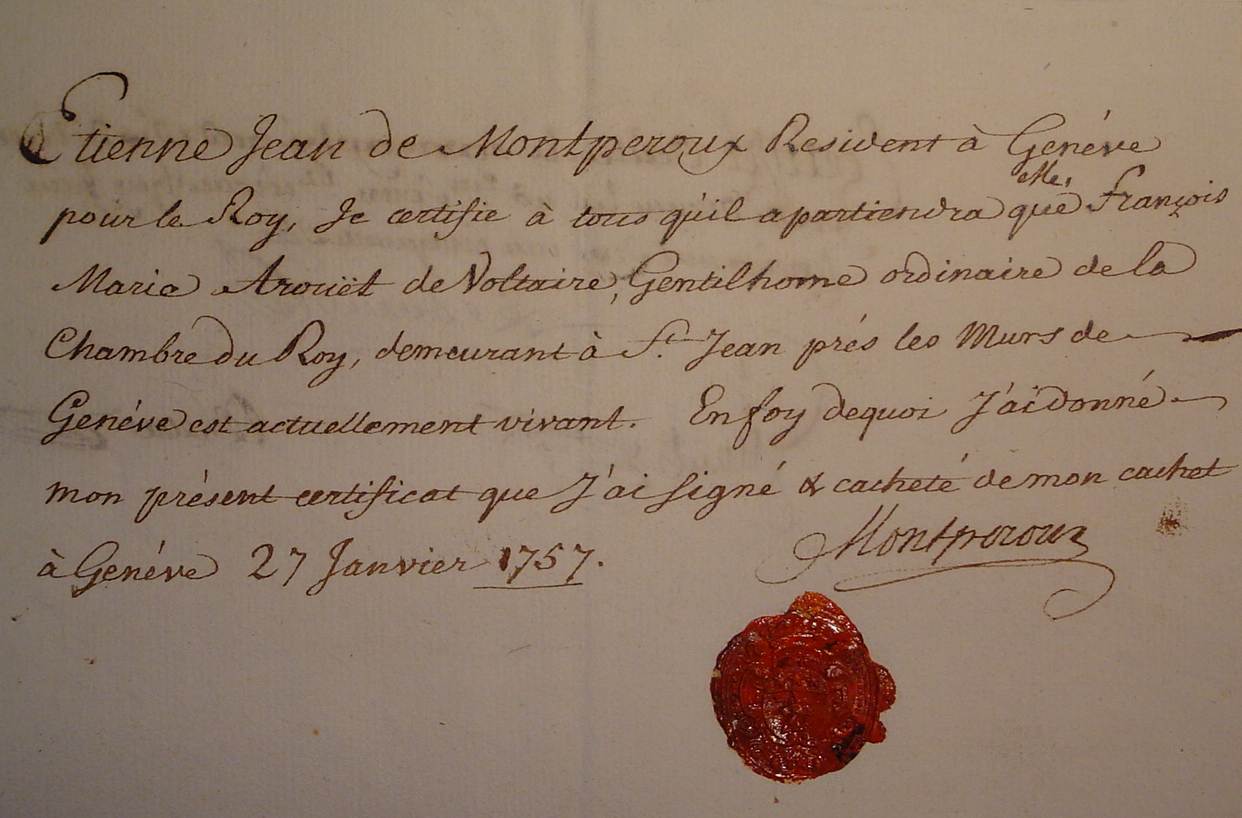 Etienne Jean de Montperoux Resident à Genéve
pour le Roy, Je certifie à tous qu'il apartiendra que Mr. François
Marie Aroüet de Voltaire, Gentilhome ordinaire de la
Chambre du Roy, demeurant à St. Jean prés les Murs de
Genéve est actuellement vivant. En foy dequoi J'ai donné
mon présent certificat que J'ai signé & cacheté de mon cachet
à Genéve 27 Janvier 1757.
Montperoux